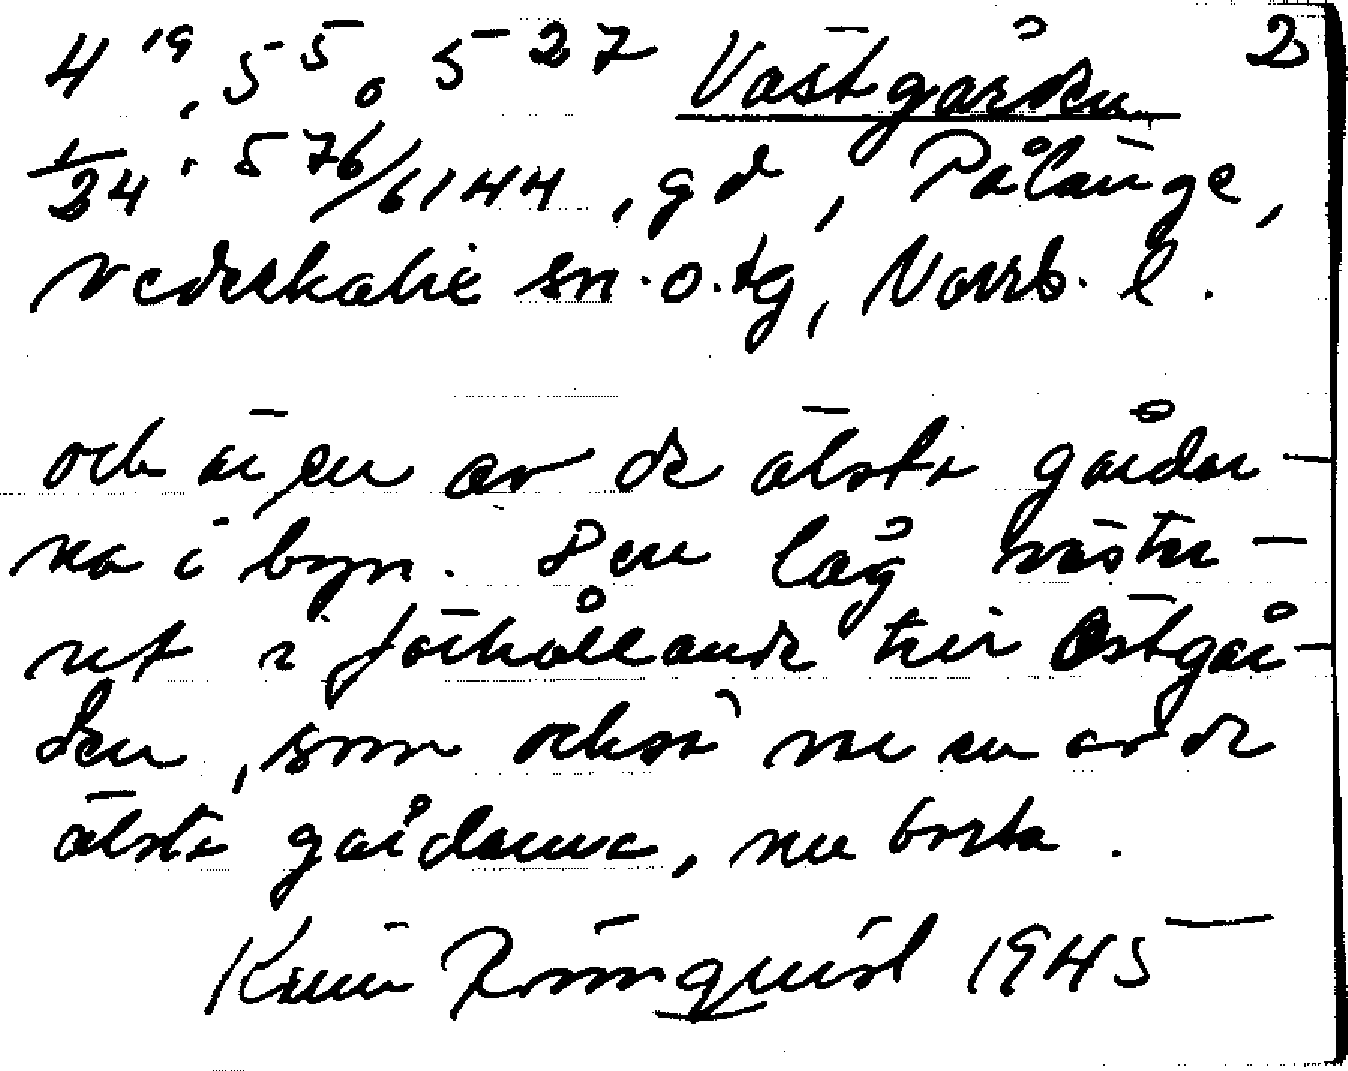 4 19, 5 5 o 5 27 Västgården 2
1/24 . 5 76/6144, gd, Pålänge,
Nederkalix sn. o. tg, Norrb. l.
och är en av de älsta gårdar-
na i byn. Den låg väster-
ut i förhållande till Östgår-
den, som också var en av de
älsta gårdarna, nu borta.
Rönnquist 1945